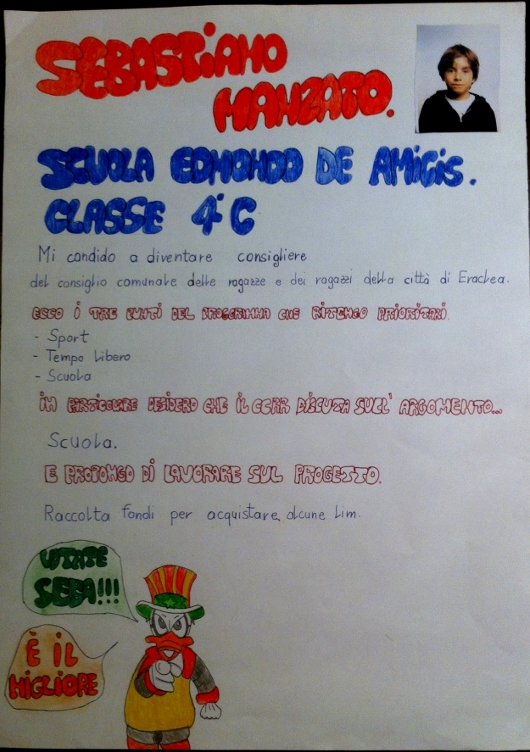 SEBASTIANO
MANZATO.
SCUOLA EDMONDO DE AMICIS.
CLASSE 4ª C
Mi candido a diventare consigliere
del consiglio comunale delle ragazze e dei ragazzi della città di Eraclea.
ECCO I TRE PUNTI DEL PROGRAMMA CHE RITENGO PRIORITARI.
- Sport
- Tempo Libero
- Scuola
IN PARTICOLARE DESIDERO CHE IL CCRR DISCUTA SULL' ARGOMENTO...
Scuola.
E PROPONGO DI LAVORARE SUL PROGETTO.
Raccolta fondi per acquistare alcune Lim.
VOTATE
SEBA!!!
È IL
MIGLIORE